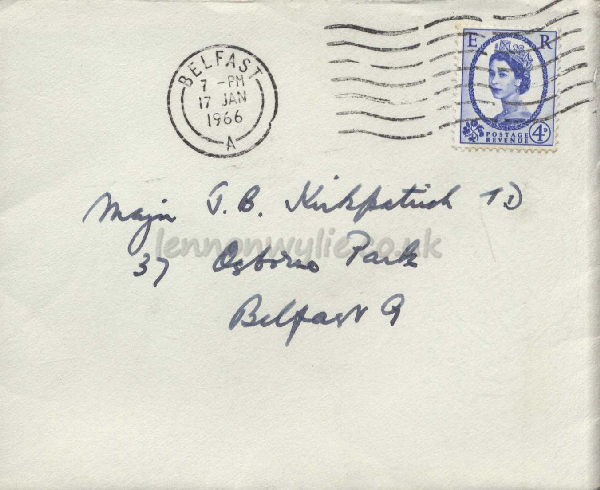 BELFAST
7 - PM
17 JAN
1966
A
E R
POSTAGE
REVENUE
4D
Major J. B. Kirkpatrick TD
lennonwylie.co.uk
37 Osborne Park
Belfast 9